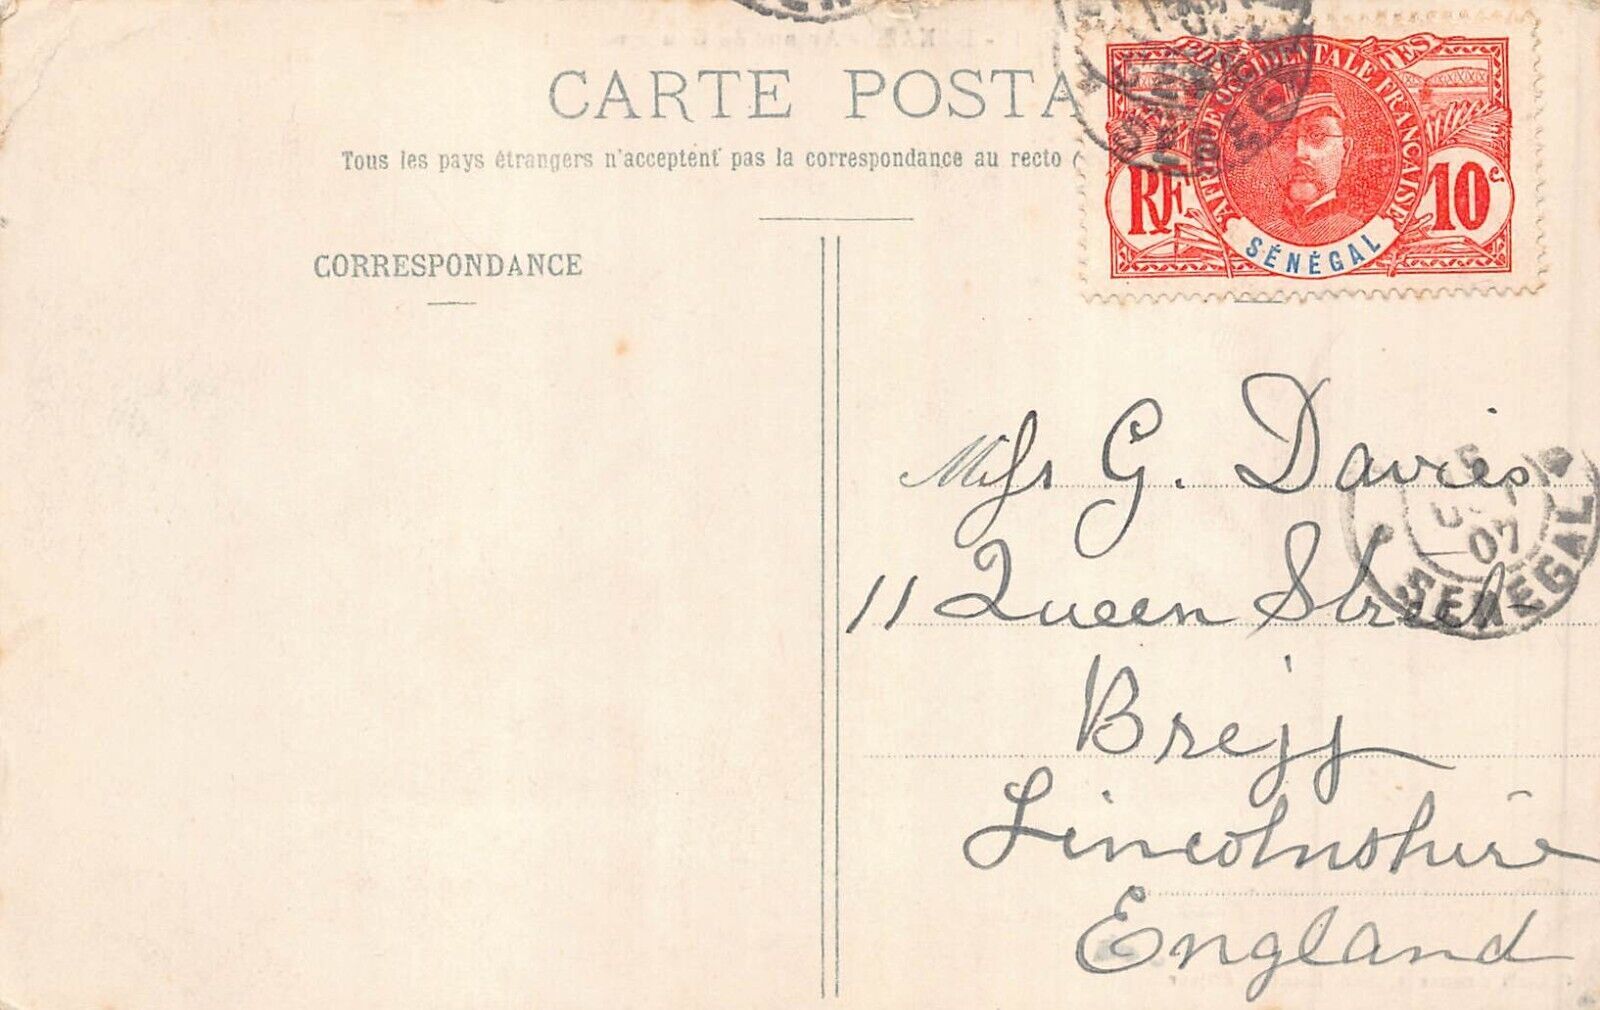 CARTE POSTA
Tous les pays étrangers n'acceptent pas la correspondance au recto
CORRESPONDANCE
POSTES
AFRIQUE OCCIDENTALE FRANÇAISE
RF
10 c.
SÉNÉGAL
Miss G. Davies
11 Queen Street
Brigg
Lincolnshire
England
07
SENEGAL